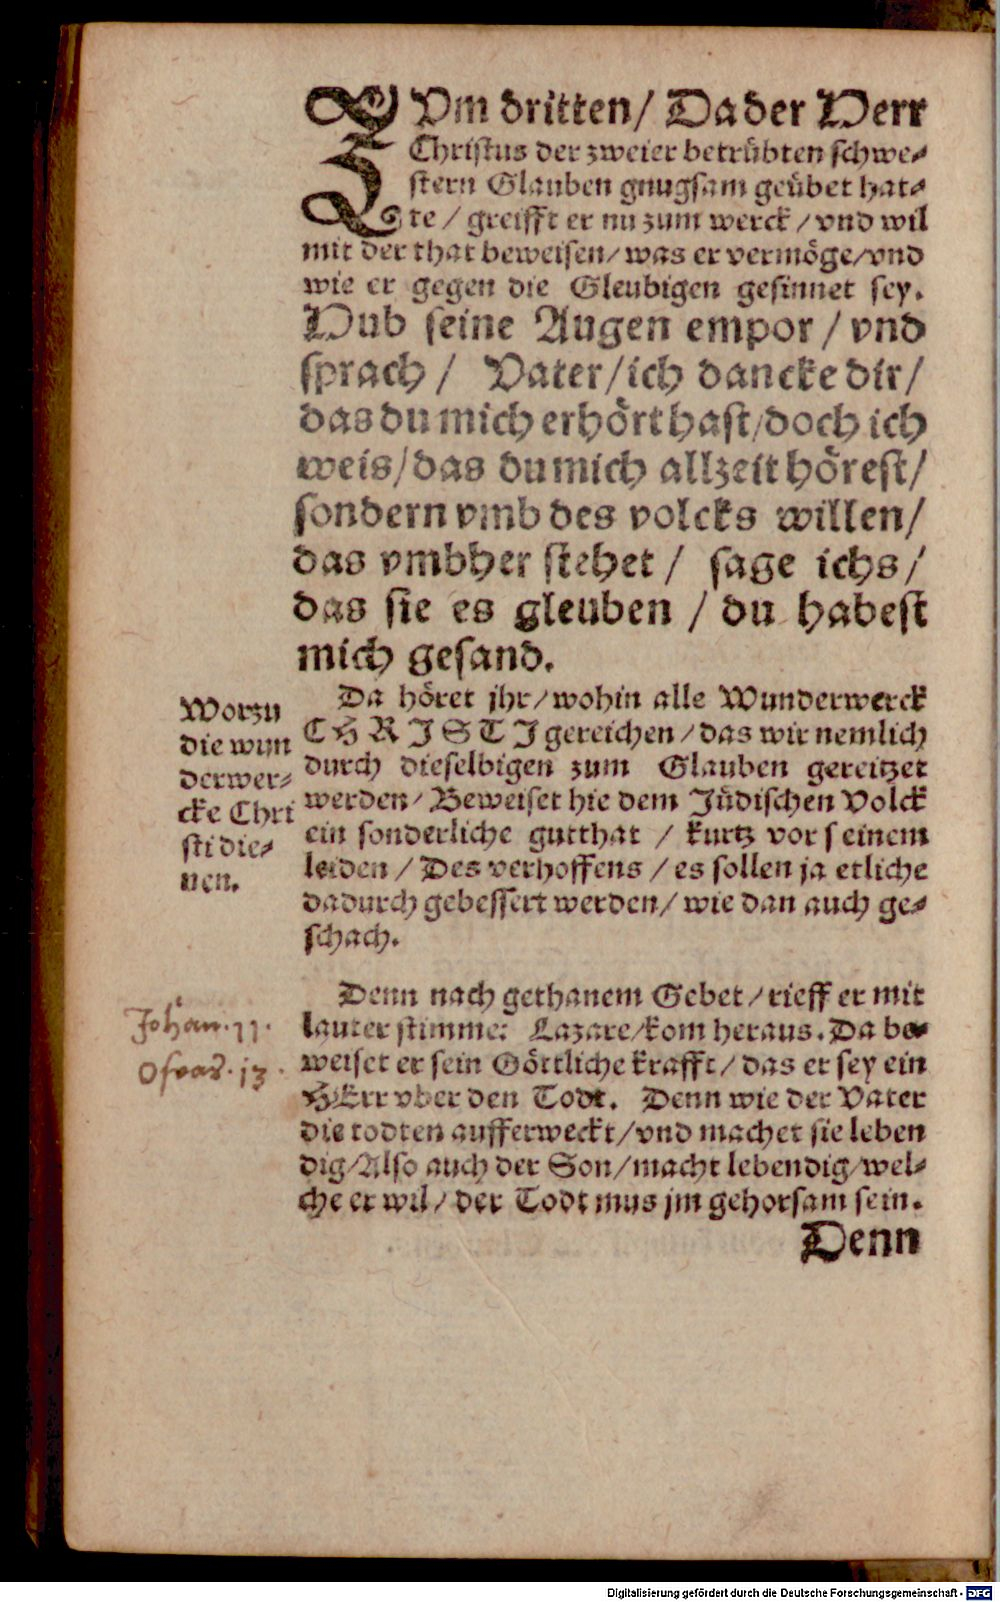 ZVm dritten/ Da der Herr
Christus der zweier betrübten schwe-
stern Glauben gnugsam geübet hat-
te / greifft er nu zum werck / vnd wil
mit der that beweisen/ was er vermöge/vnd
wie er gegen die Gleubigen gesinnet sey.
Hub seine Augen empor / vnd
sprach / Vater/ich dancke dir/
das du mich erhört hast/doch ich
weis/das du mich allzeit hörest/
sondern vmb des volcks willen/
das vmbher stehet / sage ichs /
das sie es gleuben / du habest
mich gesand.
Da höret jhr/wohin alle Wunderwerck
CHRISTI gereichen/das wir nemlich
durch dieselbigen zum Glauben gereitzet
werden/ Beweiset hie dem Jüdischen Volck
ein sonderliche gutthat / kurtz vor seinem
leiden / Des verhoffens / es sollen ja etliche
dadurch gebessert werden/ wie dan auch ge-
schach.
Worzu
die wun
derwer-
cke Chri
sti die-
nen.
Denn nach gethanem Gebet/rieff er mit
lauter stimme: Lazare/kom heraus. Da be-
weiset er sein Göttliche krafft/ das er sey ein
HErr vber den Todt. Denn wie der Vater
die todten aufferweckt/vnd machet sie leben
dig/Also auch der Son/macht lebendig/wel-
che er wil/ der Todt mus jm gehorsam sein.
Johan. 11.
Oseas. 13.
Denn
Digitalisierung gefördert durch die Deutsche Forschungsgemeinschaft - DFG